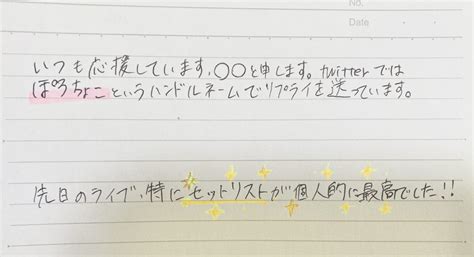 No.
Date
いつも応援しています、○○と申します。twitterでは
ぽろちょこというハンドルネームでリプライを送っています。
先日のライブ、特にセットリストが個人的に最高でした!!